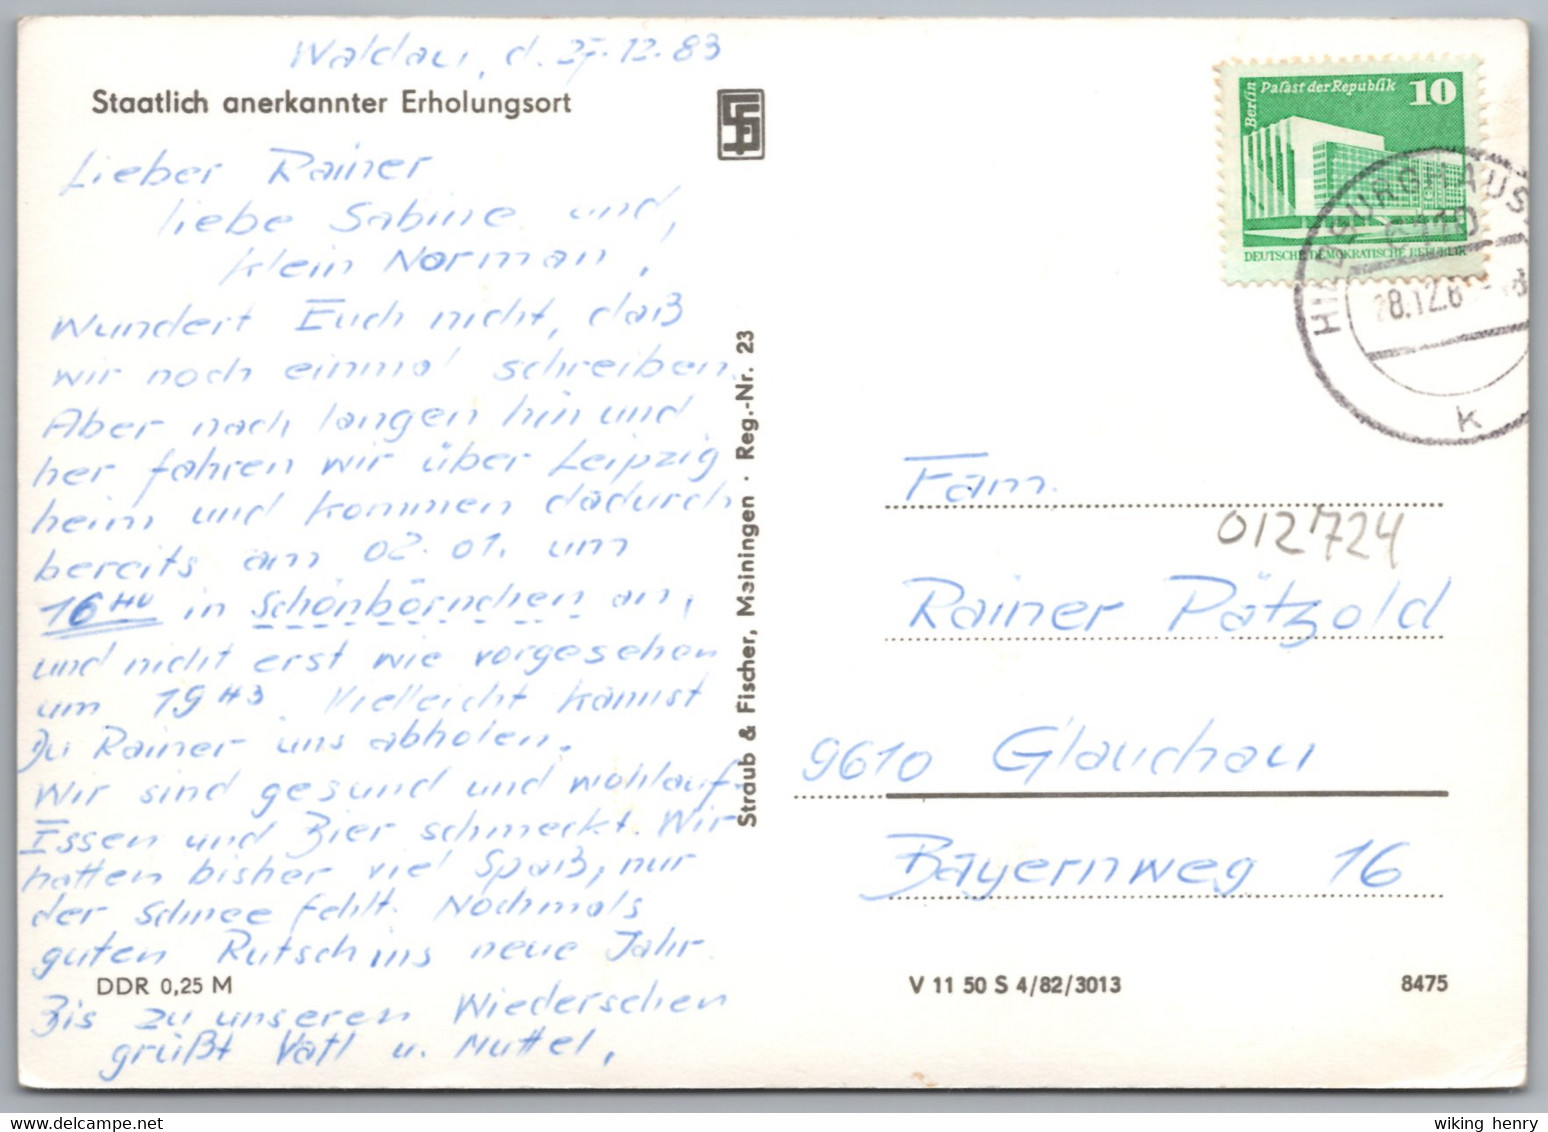 Waldau, d. 27.12.83
Staatlich anerkannter Erholungsort
Lieber Rainer
liebe Sabine und,
klein Norman,
Wundert Euch nicht, daß
wir noch einmal schreiben.
Aber nach langen hin und
her fahren wir über Leipzig
heim und kommen dadurch
bereits am 02.01. um
16 40 in Schönbörnchen an,
und nicht erst wie vorgesehen
um 19 43. Vielleicht kannst
Du Rainer uns abholen.
Wir sind gesund und wohlauf.
Essen und Bier schmeckt. Wir
hatten bisher viel Spaß, nur
der Schnee fehlt. Nochmals
guten Rutsch ins neue Jahr.
Bis zu unseren Wiedersehen
grüßt Vatl u. Muttel,
DDR 0,25 M
Straub & Fischer, Meiningen · Reg.-Nr. 23
Berlin Palast der Republik 10
DEUTSCHE DEMOKRATISCHE REPUBLIK
HILDBURGHAUS
6110
28.12.8
k
Fam.
012724
Rainer Pätzold
9610 Glauchau
Bayernweg 16
V 11 50 S 4/82/3013
8475
wiking henry